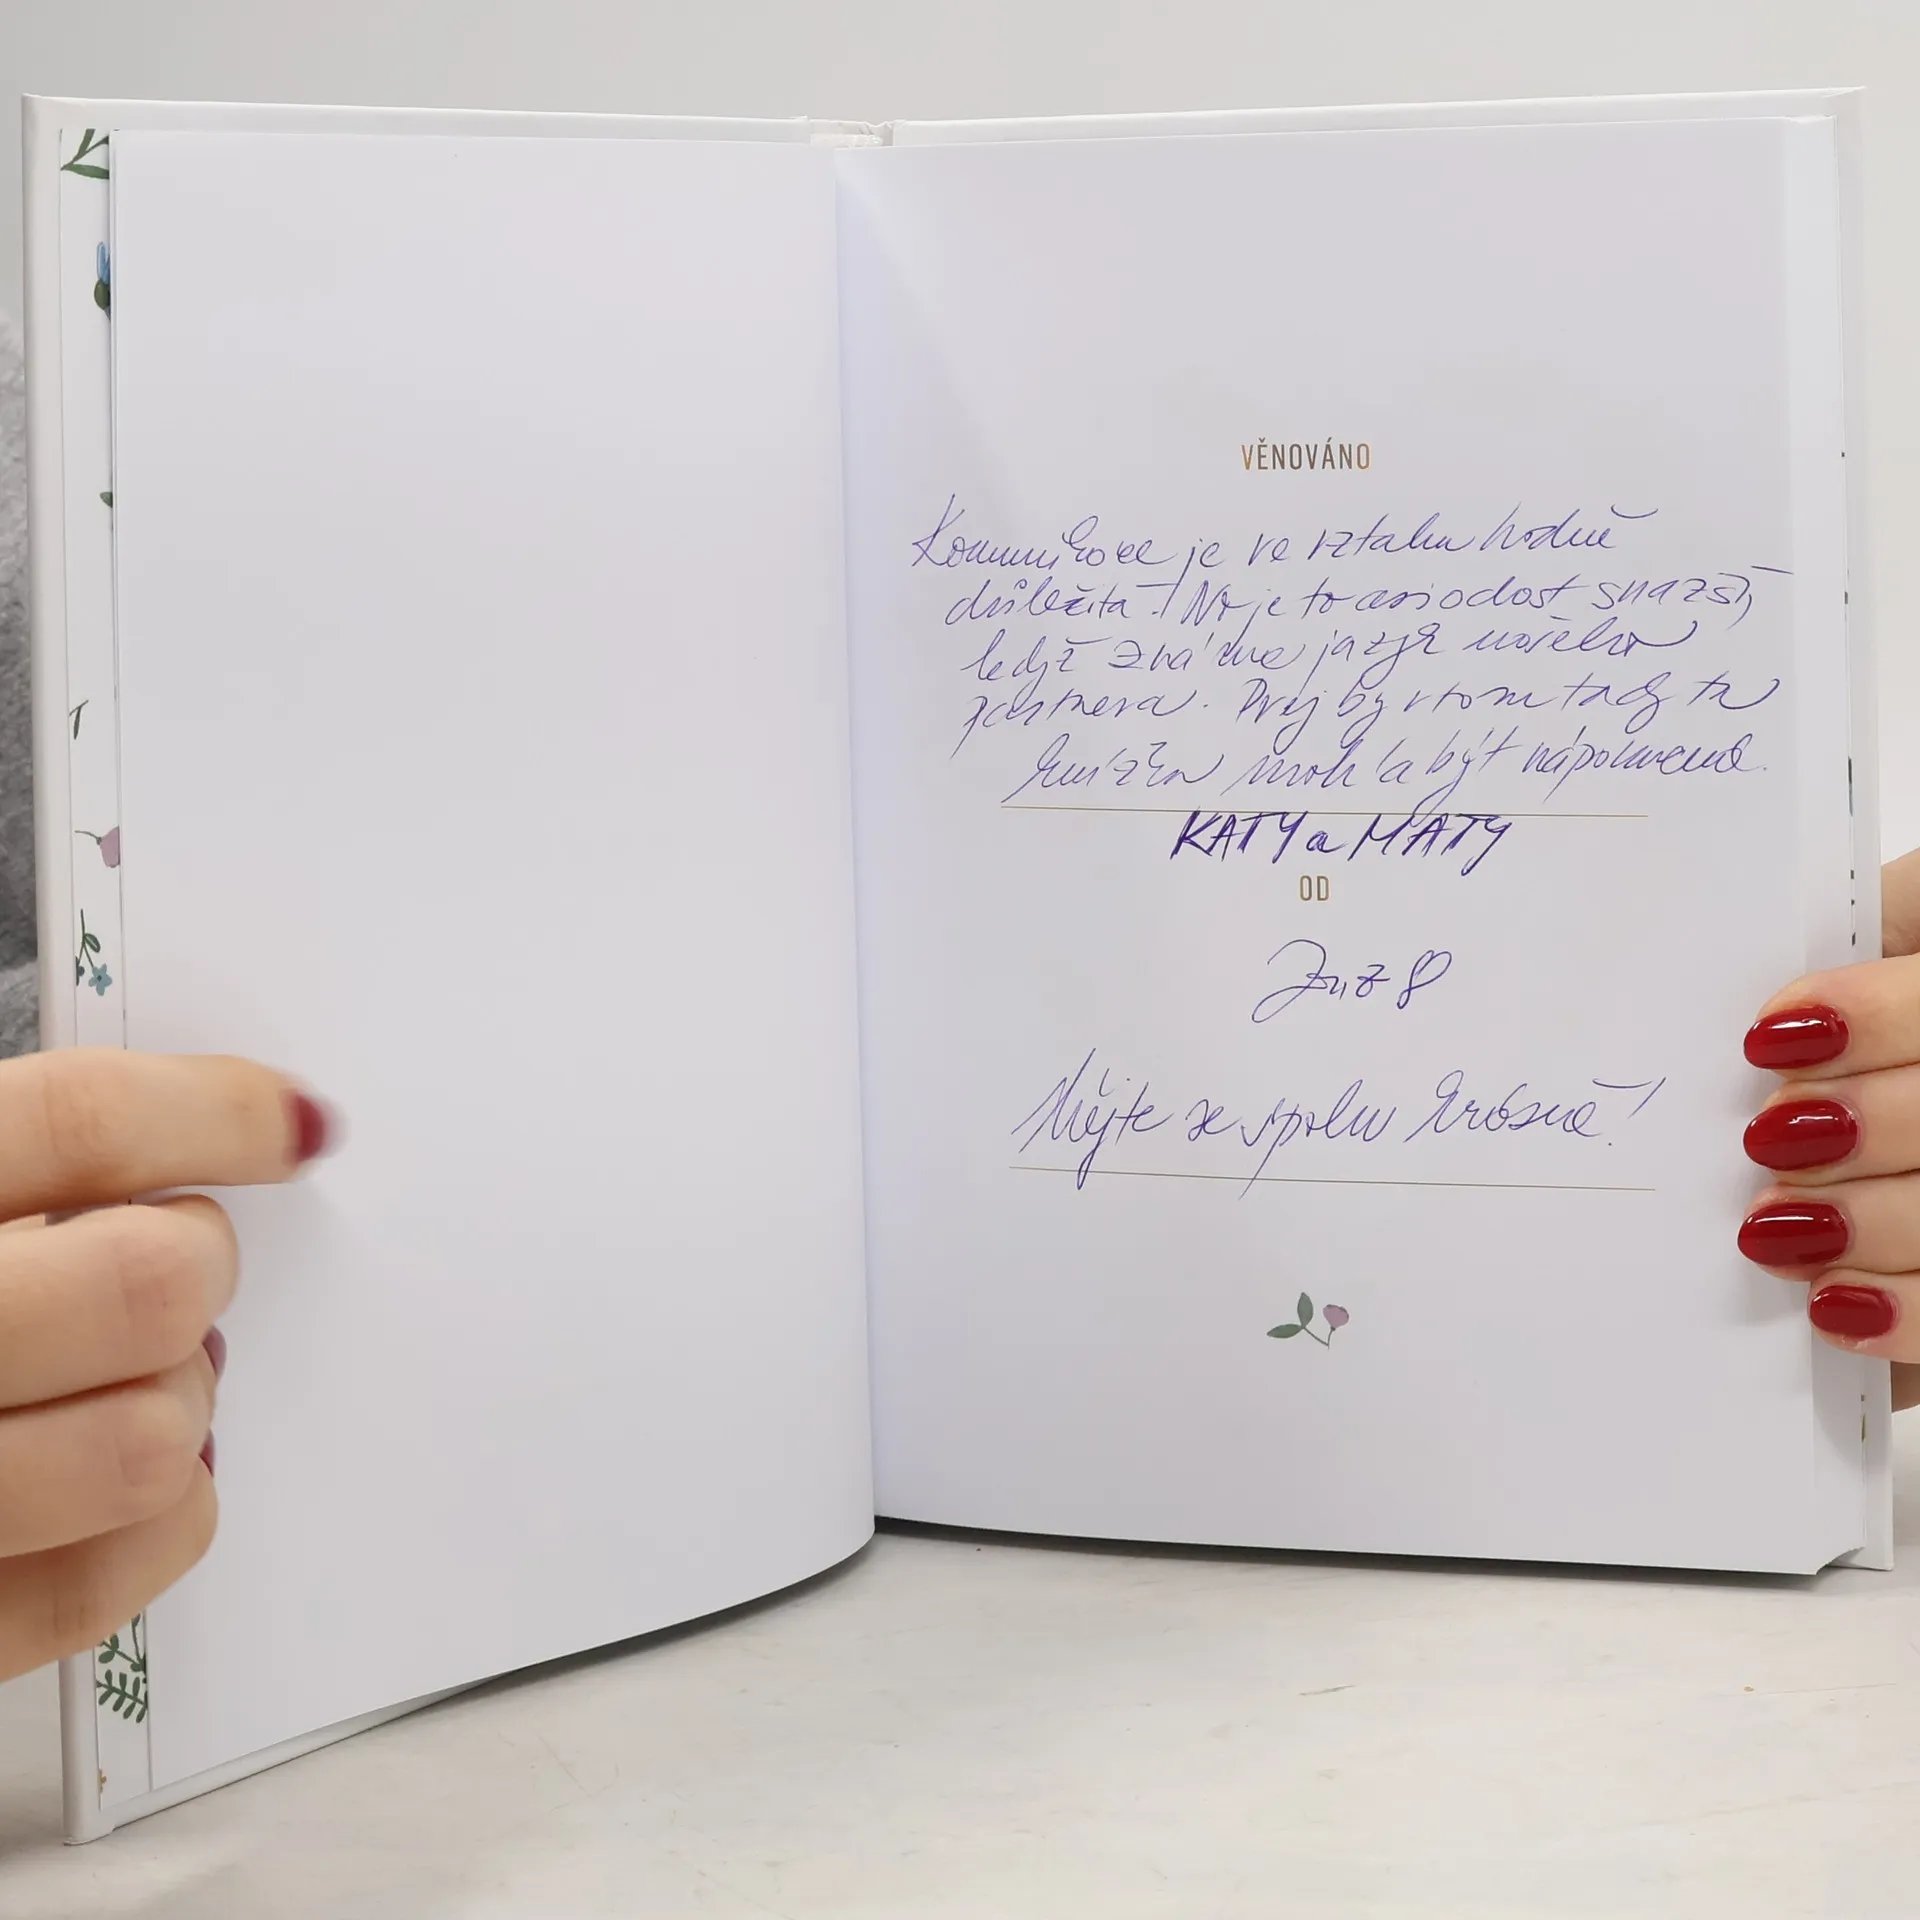 VĚNOVÁNO
Komunikace je ve vztahu hodně
důležitá. No je to asi o dost snazší,
když známe jazyk našeho
partnera. Prej by v tom tady ta
knížka mohla být nápomocná.
KATY a MATY
OD
Zuz
Mějte se spolu krásně!